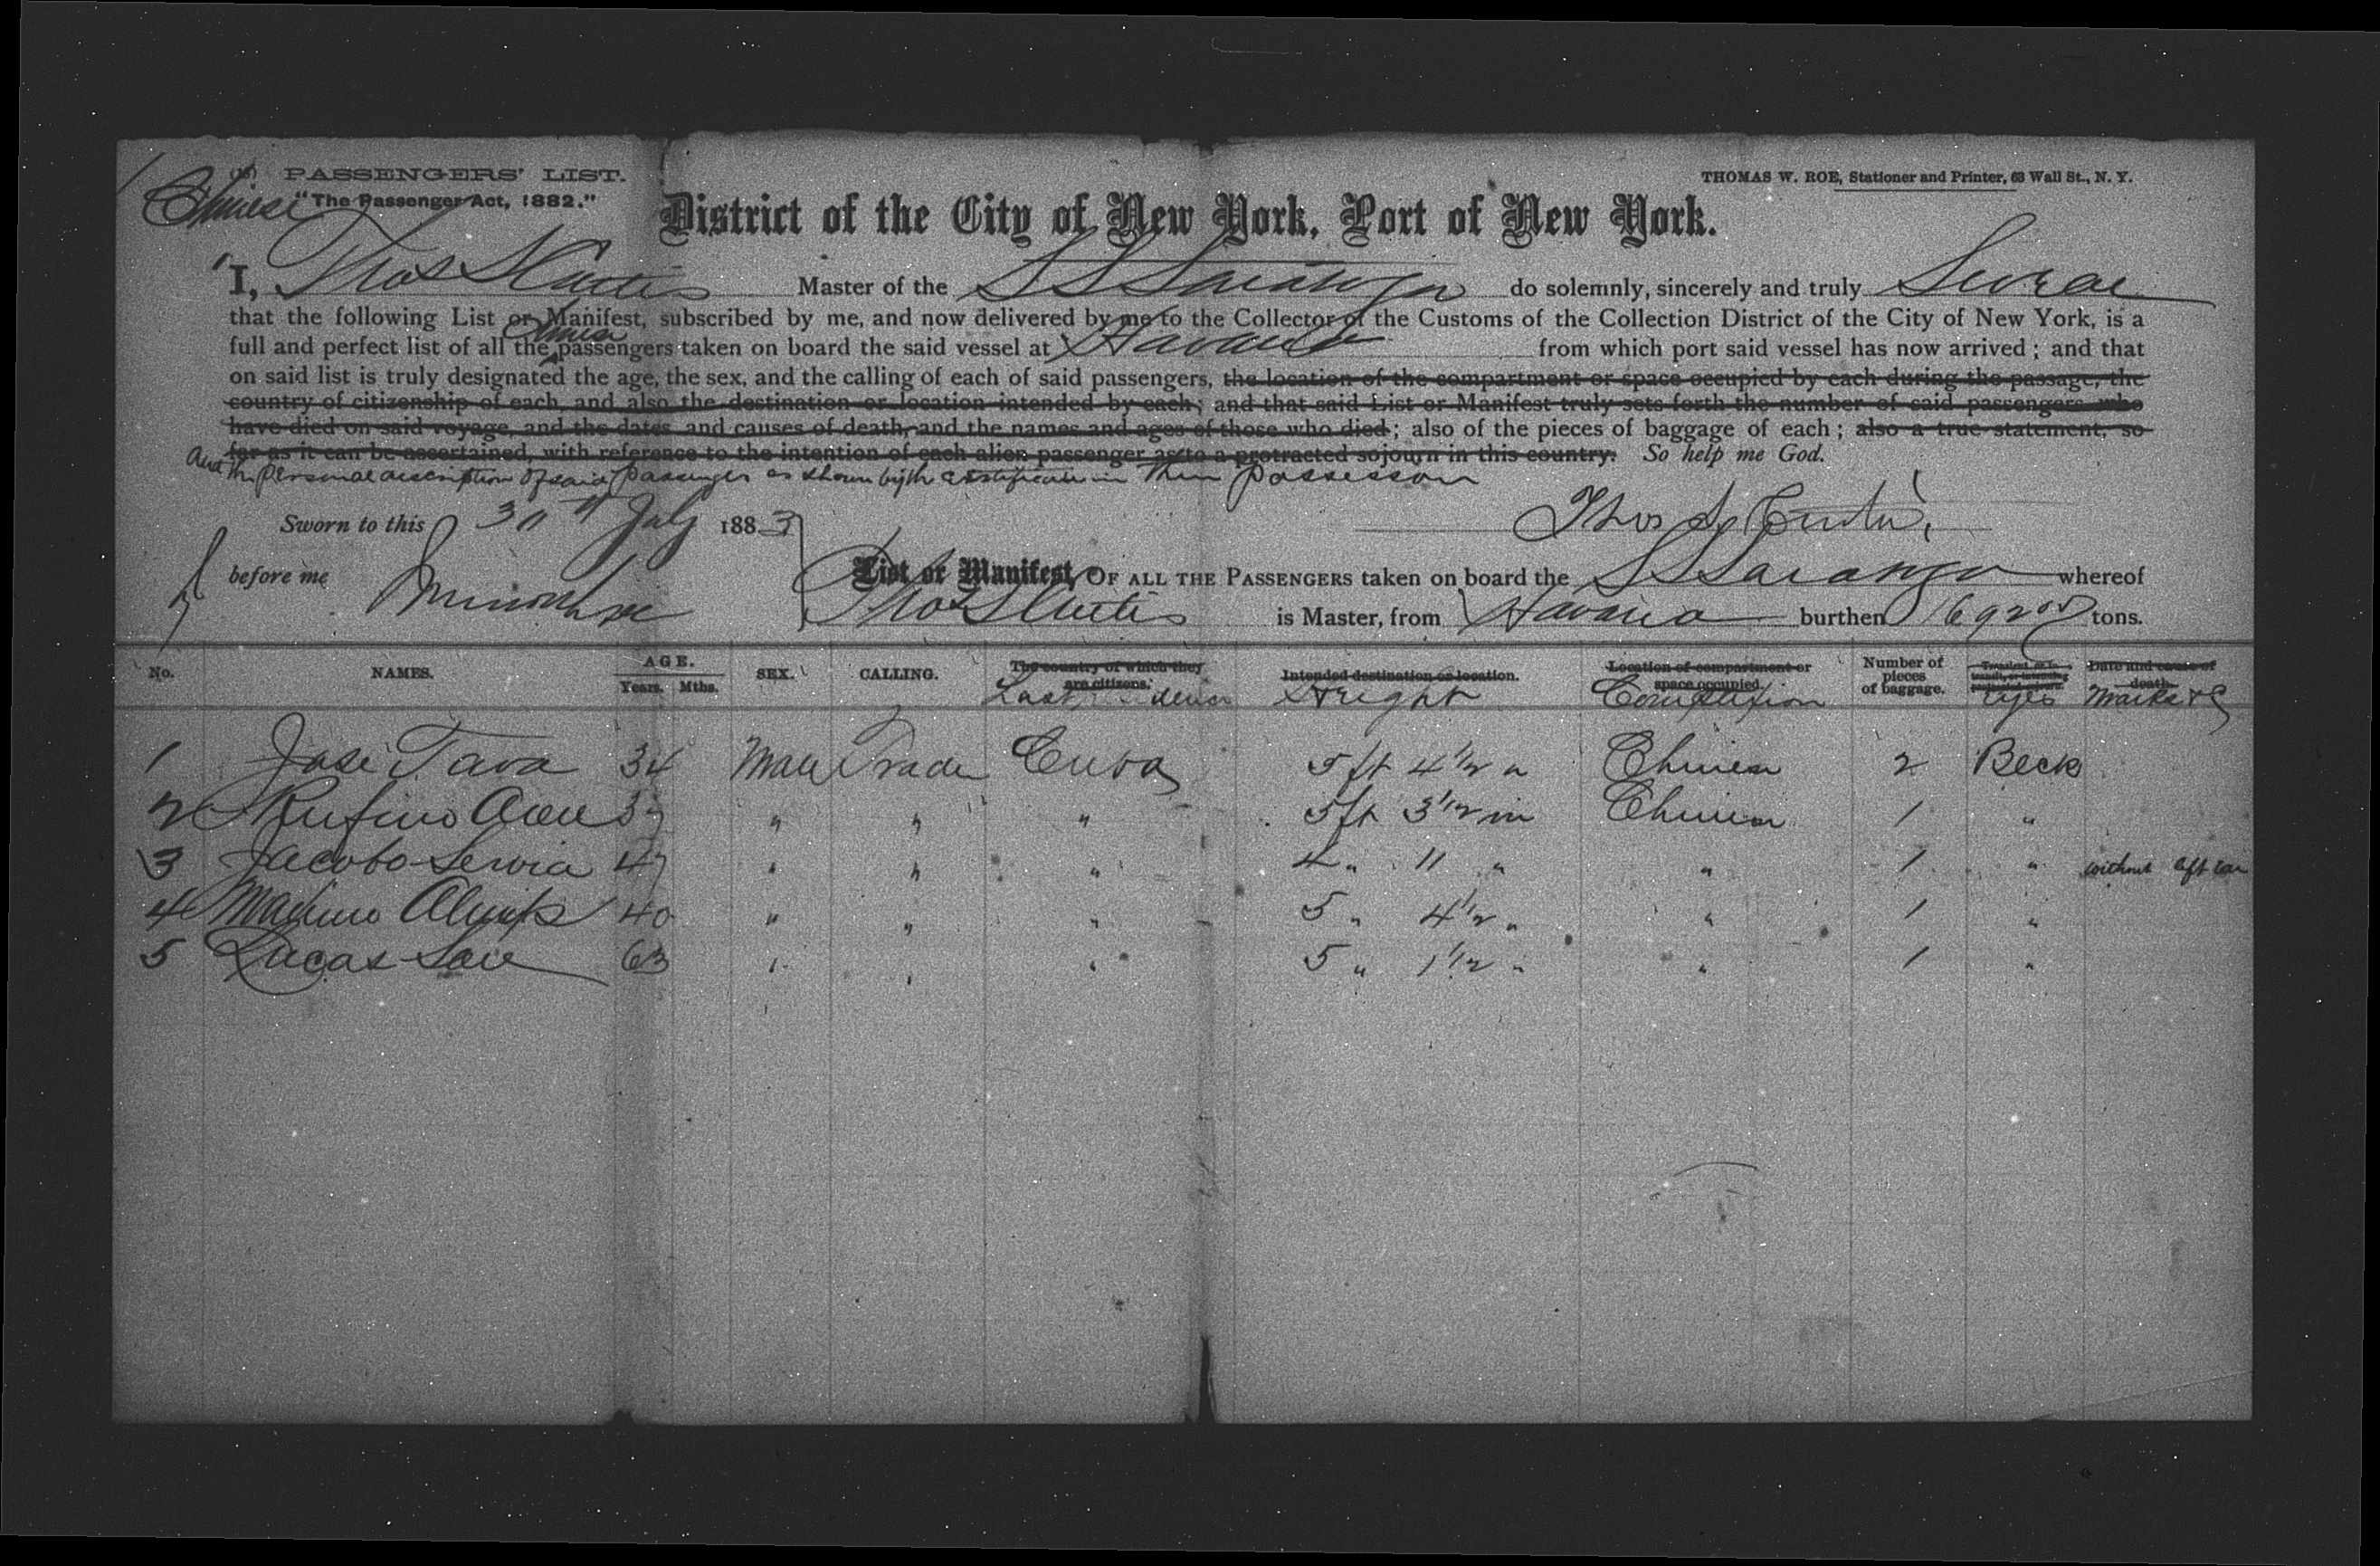 (15) PASSENGERS' LIST.
THOMAS W. ROE, Stationer and Printer, 63 Wall St., N. Y.
Chinese "The Passenger Act, 1882."
District of the City of New York, Port of New York.
I, Thos S Curtis Master of the SS Saratoga do solemnly, sincerely and truly Swear
that the following List or Manifest, subscribed by me, and now delivered by me to the Collector of the Customs of the Collection District of the City of New York, is a
full and perfect list of all the Chinese passengers taken on board the said vessel at Havana from which port said vessel has now arrived; and that
on said list is truly designated the age, the sex, and the calling of each of said passengers, the location of the compartment or space occupied by each during the passage, the
country of citizenship of each, and also the destination or location intended by each; and that said List or Manifest truly sets forth the number of said passengers who
have died on said voyage, and the dates and causes of death, and the names and ages of those who died; also of the pieces of baggage of each; also a true statement, so
far as it can be ascertained, with reference to the intention of each alien passenger as to a protracted sojourn in this country. So help me God.
And the personal description of said passenger as shown by the certificate in their possession
Sworn to this 30th July 1883
Thos S. Curtis
before me
List or Manifest, OF ALL THE PASSENGERS taken on board the SS Saratoga whereof
Thos S Curtis is Master, from Havana burthen 1692 tons.
No. NAMES. AGE. Years. Mths. SEX. CALLING. The country of which they are citizens. Intended destination or location. Location of compartment or space occupied. Number of pieces of baggage. Date and cause of death.
Last Height Complexion Eyes Marks &c
1 José Tava 34 Male Trader Cuba 5 ft 4 1/2 " Chinese 2 Beck
2 Rufino " " " 5 ft 3 1/2 in Chinese 1 "
3 Jacobo 47 " " " 4 " 11 " " 1 " without left ear
4 40 " " " 5 " 4 1/2 " " 1 "
5 Lucas 63 " " " 5 " 1 1/2 " " 1 "